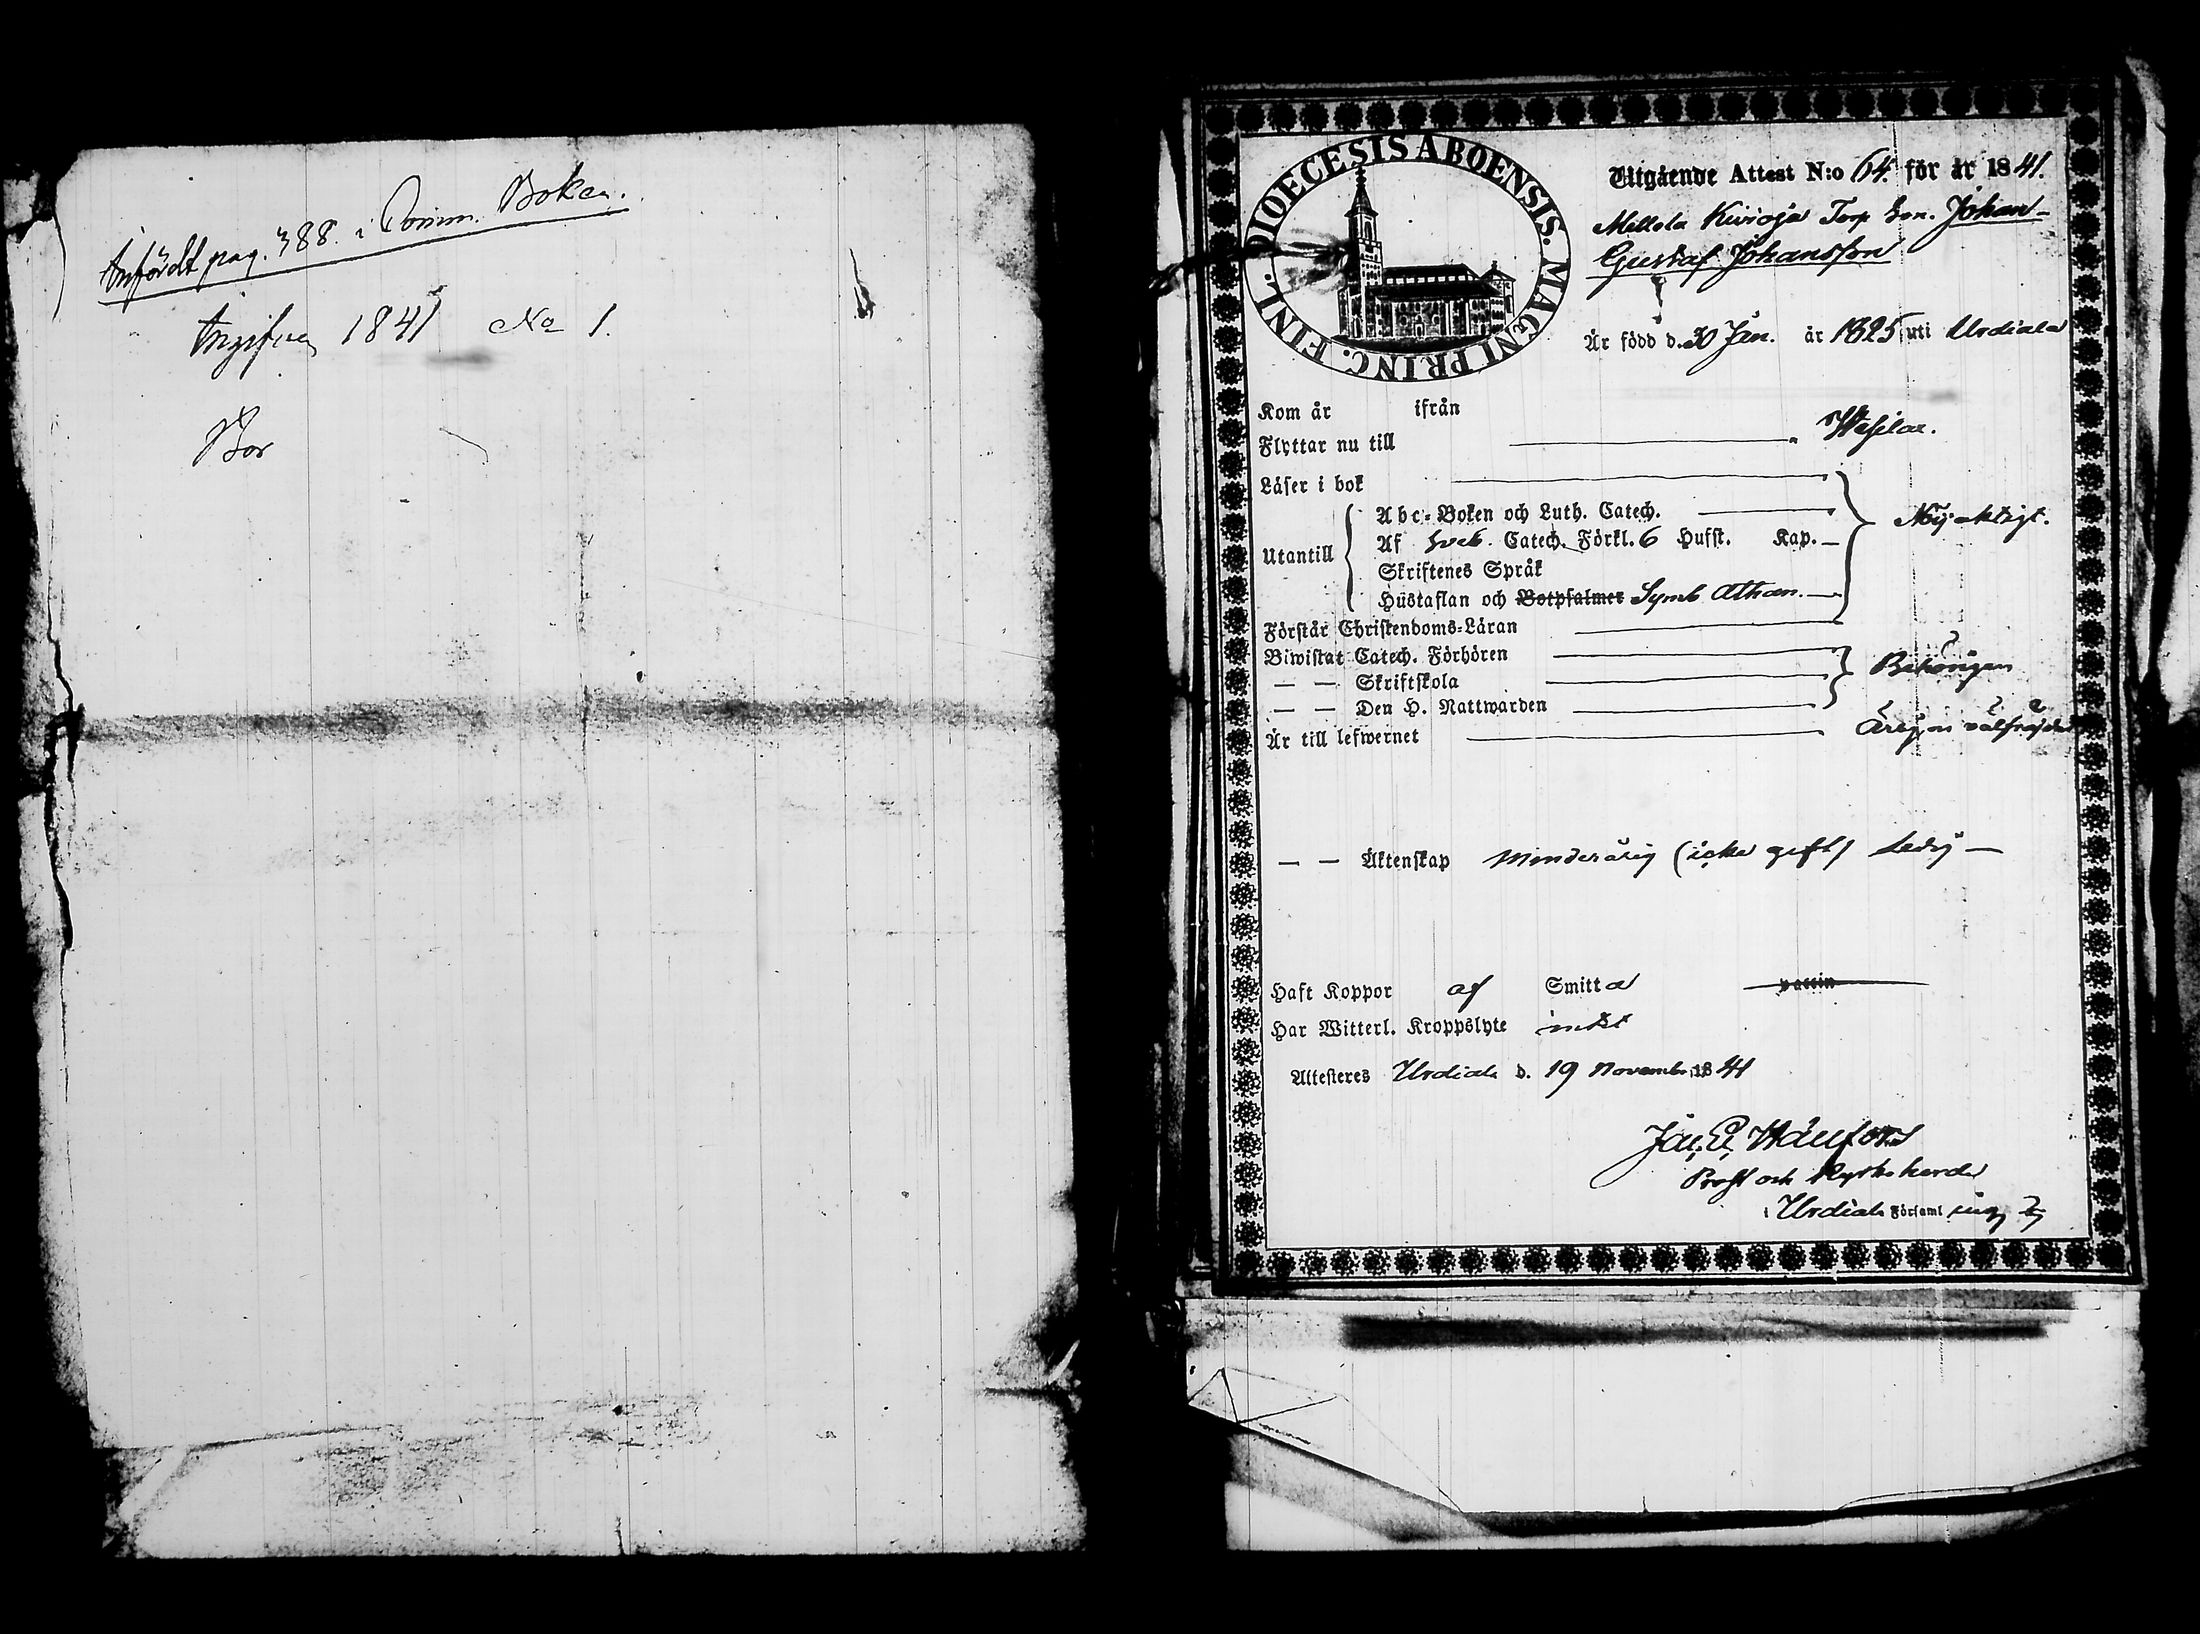 Anfördt pag. 388. i Comm. Boken.
Ingifven 1841 No 1.
Bor
DIOECESIS ABOENSIS. MAGNI PRINC. FINL.
Utgående Attest N:o 64. för år 1841.
Mellola Kivioja Torp Son. Johan
Gustaf Johansson
Är född d. 30 Jan. år 1825 uti Urdiala
Kom år ifrån
Flyttar nu till Wesilax.
Läser i bok
Abc-Boken och Luth. Catech.
Utantill Af Sveb. Catech. Förkl. 6 Hufst. Kap. Nöjaktigt.
Skriftenes Språk
Hustaflan och Botpsalmer Symb Athan.
Förstår Christendoms-Läran
Biwistat Catech. Förhören
— — Skriftskola Behörigen
— — Den H. Nattwarden
Är till lefwernet Ärlig, en välfräjdad
— — Äktenskap Minderårig (icke gift) ledig —
Haft Koppor af Smitta vaccin
Har Witterl. Kroppslyte intet
Attesteres Urdiala d. 19 November 1841
Prost och Kyrkoherde
i Urdiala Församling